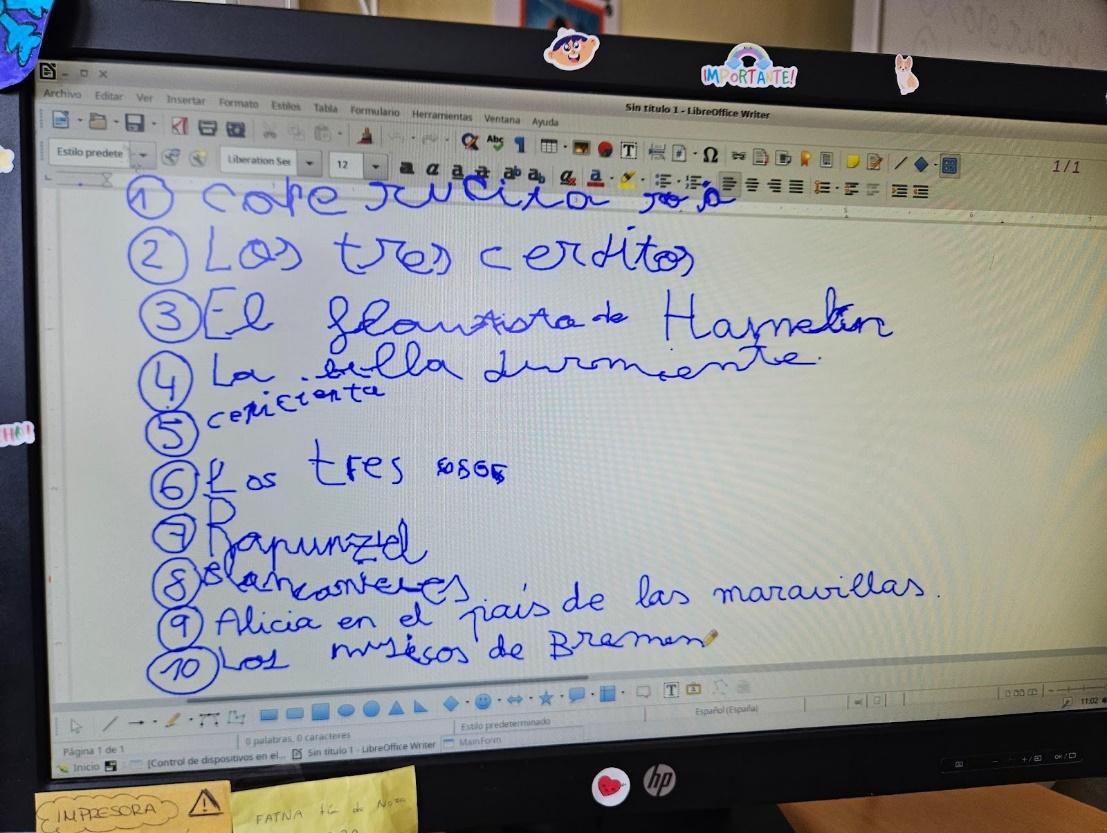 IMPORTANTE!
Sin título 1 - LibreOffice Writer
Archivo Editar Ver Insertar Formato Estilos Tabla Formulario Herramientas Ventana Ayuda
Estilo predete
Liberation Ser
12
1/1
① caperucita roja
② Los tres cerditos
③ El flautista de Hamelin
④ La bella durmiente.
⑤ cenicienta
⑥ Los tres osos
⑦ Rapunzel
⑧ Blancanieves
⑨ Alicia en el país de las maravillas.
⑩ Los musicos de Bremen
Página 1 de 1
0 palabras, 0 caracteres
Estilo predeterminado
Español (España)
Inicio
[Control de dispositivos en el...
Sin título 1 - LibreOffice Writer
MainForm
11:02
hp
IMPRESORA
FATNA